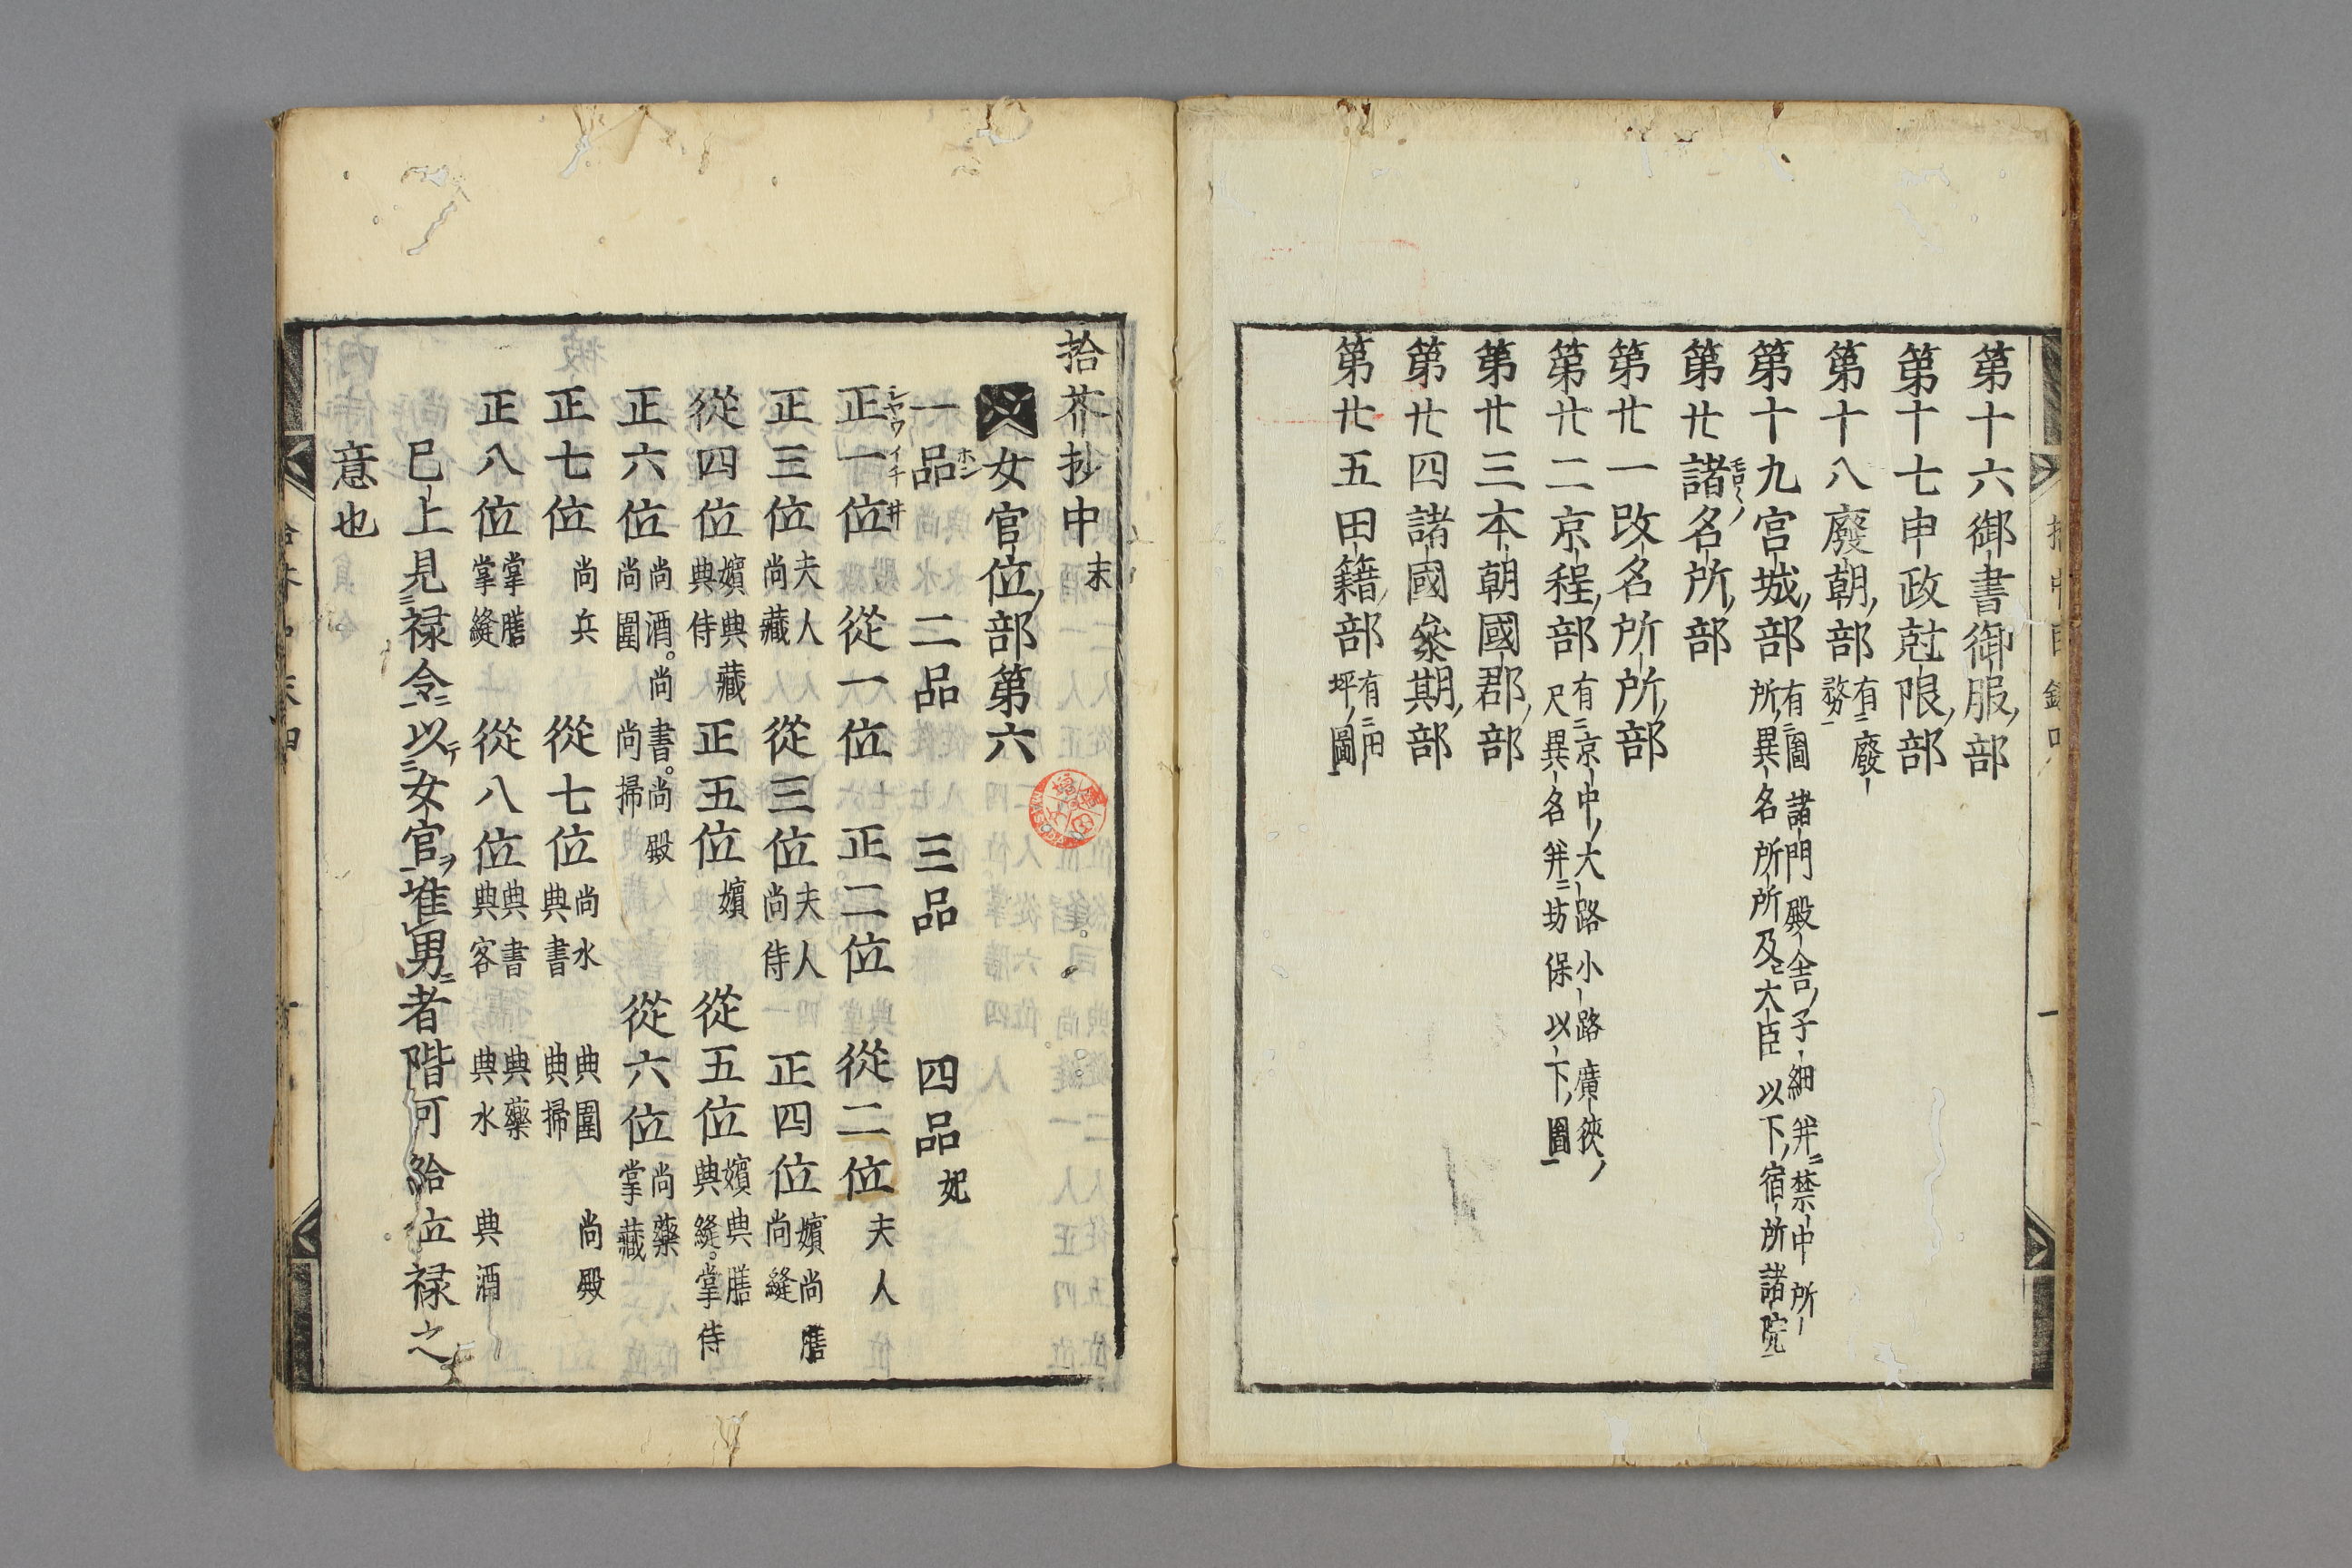 第十六御書御服部
第十七申政尅限部
第十八廢朝部有廢務
第十九宮城部有圖諸門殿舎子細并禁中所所異名所所及大臣以下宿所諸院
第廿諸名所部
第廿一改名所所部
第廿二京程部有京中大路小路廣狹尺異名并坊保以下圖
第廿三本朝國郡部
第廿四諸國粂期部
第廿五田籍部有田坪圖
拾芥抄中末
女官位部第六
一品ホン 二品 三品 四品妃
正一位シヤウイチ井 從一位 正二位 從二位夫人
正三位夫人尚藏 從三位夫人尚侍 正四位嬪尚膳尚縫
從四位嬪典藏典侍 正五位嬪 從五位嬪典膳典縫。掌侍
正六位尚酒。尚書。尚殿尚闈尚掃 從六位尚藥掌藏
正七位尚兵 從七位尚水典闈尚殿典書典掃
正八位掌膳掌縫 從八位典書典藥典客典水典酒
已上見禄令以女官准男者階可給位禄之
意也